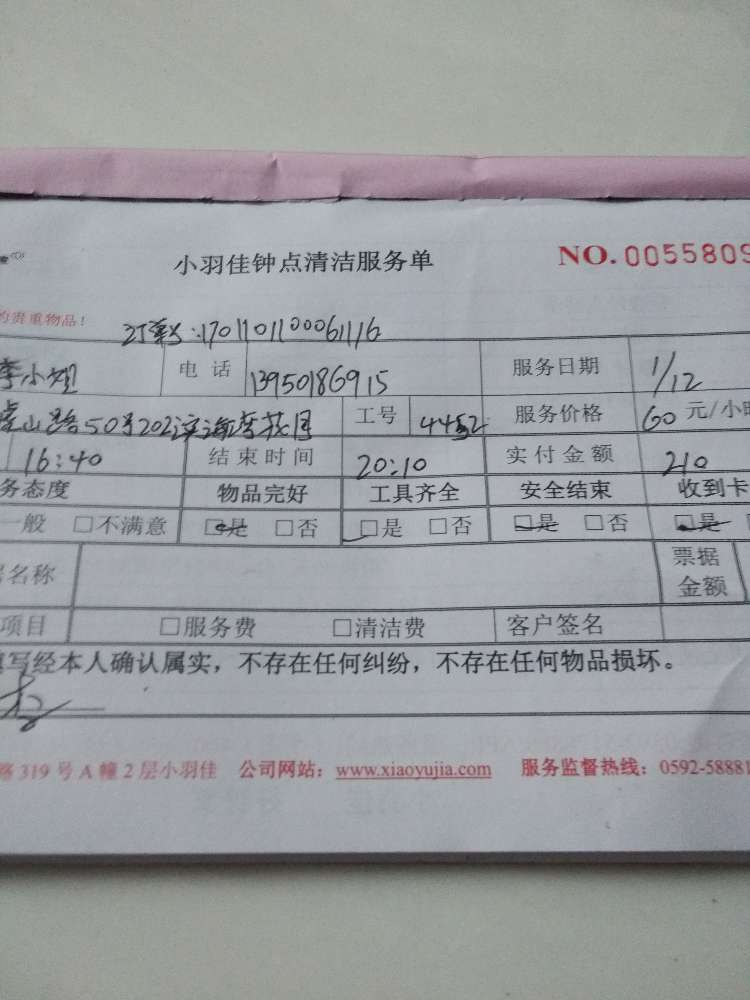 小羽佳钟点清洁服务单 NO.0055809
的贵重物品!
订单号:1701101100061116
李小姐 电话 13950186915 服务日期 1/12
虎山路50号202 工号 4452 服务价格 60元/小时
16:40 结束时间 20:10 实付金额 210
务态度 物品完好 工具齐全 安全结束 收到卡
一般 □不满意 □是 □否 □是 □否 □是 □否 □是
名称 票据金额
项目 □服务费 □清洁费 客户签名
填写经本人确认属实,不存在任何纠纷,不存在任何物品损坏。
路319号A幢2层小羽佳 公司网站:www.xiaoyujia.com 服务监督热线:0592-58881